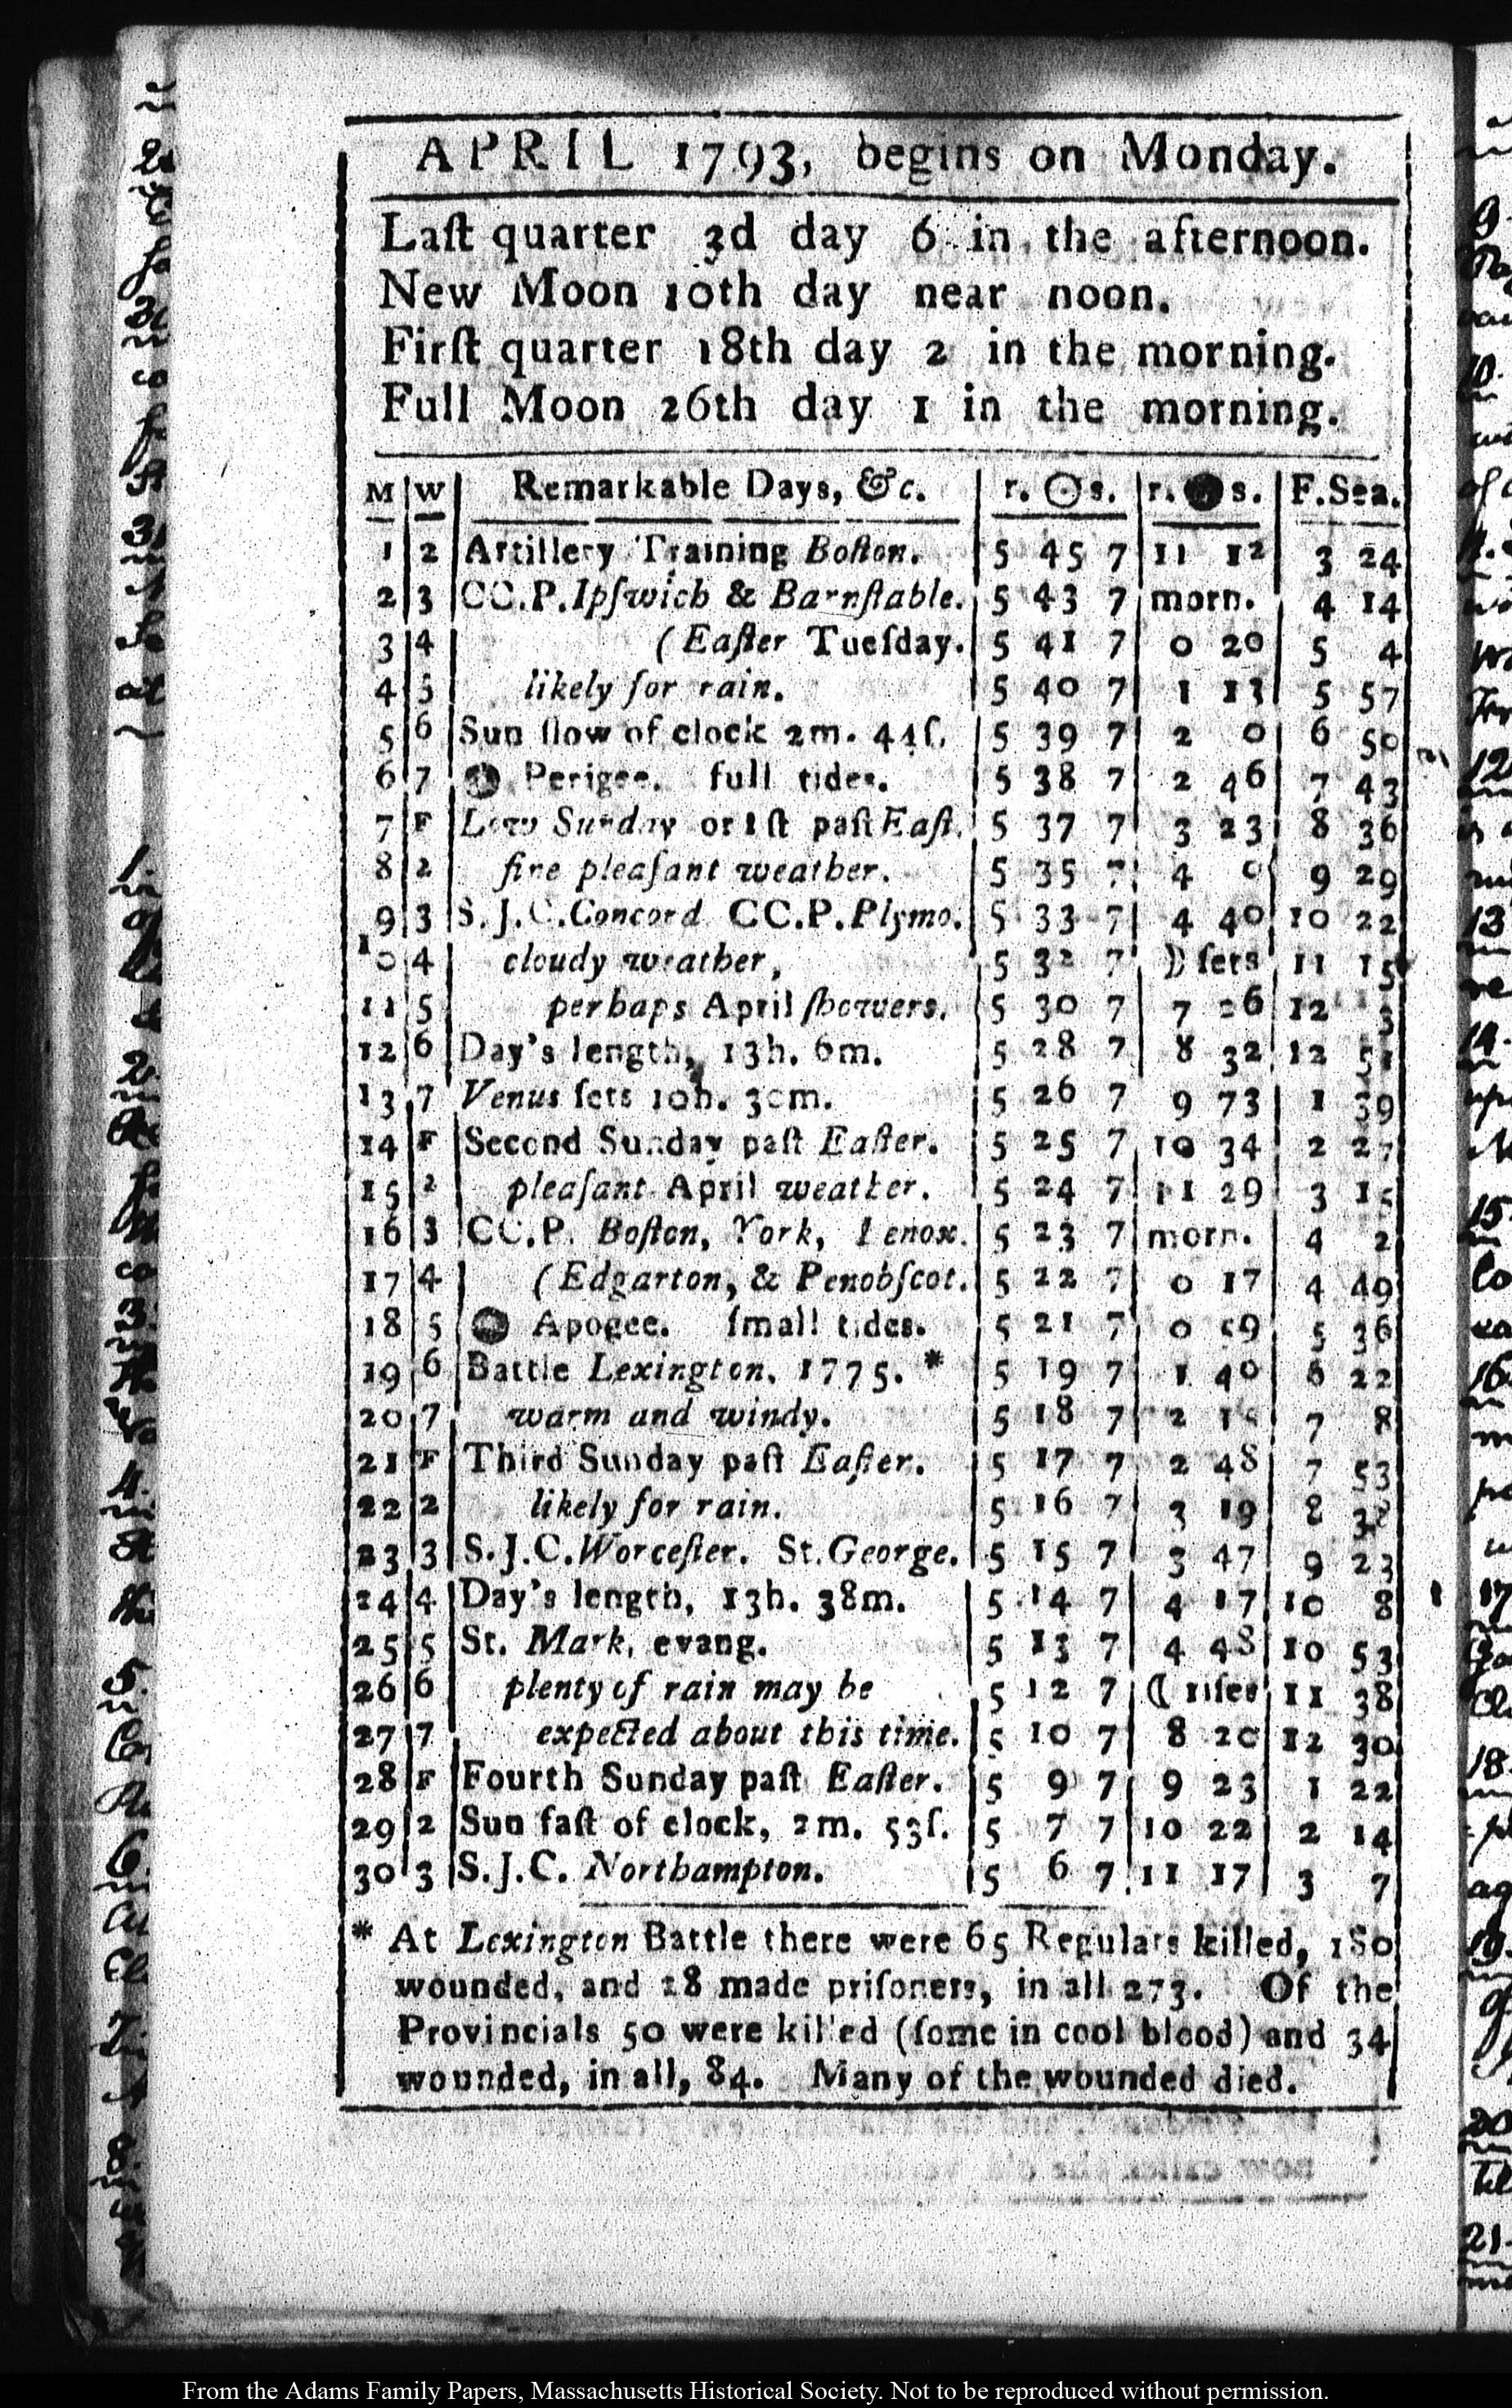 APRIL 1793, begins on Monday.
Laſt quarter 3d day 6 in the afternoon.
New Moon 10th day near noon.
Firſt quarter 18th day 2 in the morning.
Full Moon 26th day 1 in the morning.
M W Remarkable Days, &c. r. ☉ s. r. ● s. F.Sea.
1 2 Artillery Training Boſton. 5 45 7 11 12 3 24
2 3 CC.P. Ipſwich & Barnſtable. 5 43 7 morn. 4 14
3 4 (Eaſter Tueſday. 5 41 7 0 20 5 4
4 5 likely for rain. 5 40 7 1 13 5 57
5 6 Sun ſlow of clock 2m. 44ſ. 5 39 7 2 0 6 50
6 7 ● Perigee. full tides. 5 38 7 2 46 7 43
7 F Low Sunday or 1ſt paſt Eaſt. 5 37 7 3 23 8 36
8 2 fine pleaſant weather. 5 35 7 4 0 9 29
9 3 S.J.C. Concord CC.P. Plymo. 5 33 7 4 40 10 22
10 4 cloudy weather, 5 32 7 ☽ ſets 11 15
11 5 perhaps April ſhowers. 5 30 7 7 26 12 3
12 6 Day's length, 13h. 6m. 5 28 7 8 32 12 51
13 7 Venus ſets 10h. 30m. 5 26 7 9 73 1 39
14 F Second Sunday paſt Eaſter. 5 25 7 10 34 2 27
15 2 pleaſant April weather. 5 24 7 11 29 3 15
16 3 CC.P. Boſton, York, Lenox. 5 23 7 morn. 4 2
17 4 (Edgarton, & Penobſcot. 5 22 7 0 17 4 49
18 5 ● Apogee. ſmall tides. 5 21 7 0 59 5 36
19 6 Battle Lexington, 1775. * 5 19 7 1 40 6 22
20 7 warm and windy. 5 18 7 2 7 8
21 F Third Sunday paſt Eaſter. 5 17 7 2 48 7 53
22 2 likely for rain. 5 16 7 3 19 8 38
23 3 S.J.C. Worceſter. St. George. 5 15 7 3 47 9 23
24 4 Day's length, 13h. 38m. 5 14 7 4 17 10 8
25 5 St. Mark, evang. 5 13 7 4 48 10 53
26 6 plenty of rain may be 5 12 7 ☾ riſes 11 38
27 7 expected about this time. 5 10 7 8 20 12 30
28 F Fourth Sunday paſt Eaſter. 5 9 7 9 23 1 22
29 2 Sun faſt of clock, 2m. 53ſ. 5 7 7 10 22 2 14
30 3 S.J.C. Northampton. 5 6 7 11 17 3 7
* At Lexington Battle there were 65 Regulars killed, 180
wounded, and 28 made priſoners, in all 273. Of the
Provincials 50 were killed (ſome in cool blood) and 34
wounded, in all, 84. Many of the wounded died.
From the Adams Family Papers, Massachusetts Historical Society. Not to be reproduced without permission.